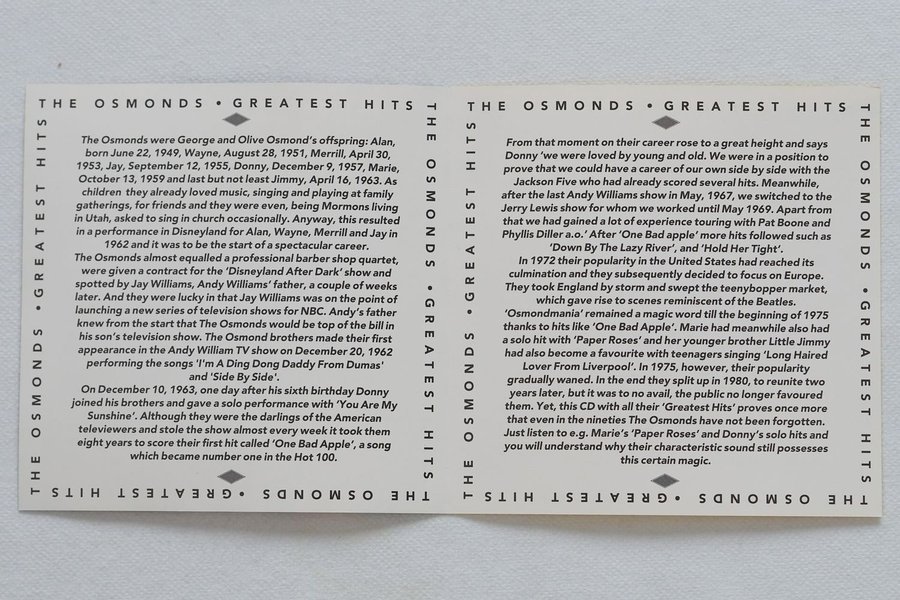 THE OSMONDS • GREATEST HITS
THE OSMONDS • GREATEST HITS
The Osmonds were George and Olive Osmond's offspring: Alan,
born June 22, 1949, Wayne, August 28, 1951, Merrill, April 30,
1953, Jay, September 12, 1955, Donny, December 9, 1957, Marie,
October 13, 1959 and last but not least Jimmy, April 16, 1963. As
children they already loved music, singing and playing at family
gatherings, for friends and they were even, being Mormons living
in Utah, asked to sing in church occasionally. Anyway, this resulted
in a performance in Disneyland for Alan, Wayne, Merrill and Jay in
1962 and it was to be the start of a spectacular career.
The Osmonds almost equalled a professional barber shop quartet,
were given a contract for the 'Disneyland After Dark' show and
spotted by Jay Williams, Andy Williams' father, a couple of weeks
later. And they were lucky in that Jay Williams was on the point of
launching a new series of television shows for NBC. Andy's father
knew from the start that The Osmonds would be top of the bill in
his son's television show. The Osmond brothers made their first
appearance in the Andy William TV show on December 20, 1962
performing the songs 'I'm A Ding Dong Daddy From Dumas'
and 'Side By Side'.
On December 10, 1963, one day after his sixth birthday Donny
joined his brothers and gave a solo performance with 'You Are My
Sunshine'. Although they were the darlings of the American
televiewers and stole the show almost every week it took them
eight years to score their first hit called 'One Bad Apple', a song
which became number one in the Hot 100.
THE OSMONDS • GREATEST HITS
THE OSMONDS • GREATEST HITS
THE OSMONDS • GREATEST HITS
THE OSMONDS • GREATEST HITS
From that moment on their career rose to a great height and says
Donny 'we were loved by young and old. We were in a position to
prove that we could have a career of our own side by side with the
Jackson Five who had already scored several hits. Meanwhile,
after the last Andy Williams show in May, 1967, we switched to the
Jerry Lewis show for whom we worked until May 1969. Apart from
that we had gained a lot of experience touring with Pat Boone and
Phyllis Diller a.o.' After 'One Bad apple' more hits followed such as
'Down By The Lazy River', and 'Hold Her Tight'.
In 1972 their popularity in the United States had reached its
culmination and they subsequently decided to focus on Europe.
They took England by storm and swept the teenybopper market,
which gave rise to scenes reminiscent of the Beatles.
'Osmondmania' remained a magic word till the beginning of 1975
thanks to hits like 'One Bad Apple'. Marie had meanwhile also had
a solo hit with 'Paper Roses' and her younger brother Little Jimmy
had also become a favourite with teenagers singing 'Long Haired
Lover From Liverpool'. In 1975, however, their popularity
gradually waned. In the end they split up in 1980, to reunite two
years later, but it was to no avail, the public no longer favoured
them. Yet, this CD with all their 'Greatest Hits' proves once more
that even in the nineties The Osmonds have not been forgotten.
Just listen to e.g. Marie's 'Paper Roses' and Donny's solo hits and
you will understand why their characteristic sound still possesses
this certain magic.
THE OSMONDS • GREATEST HITS
THE OSMONDS • GREATEST HITS